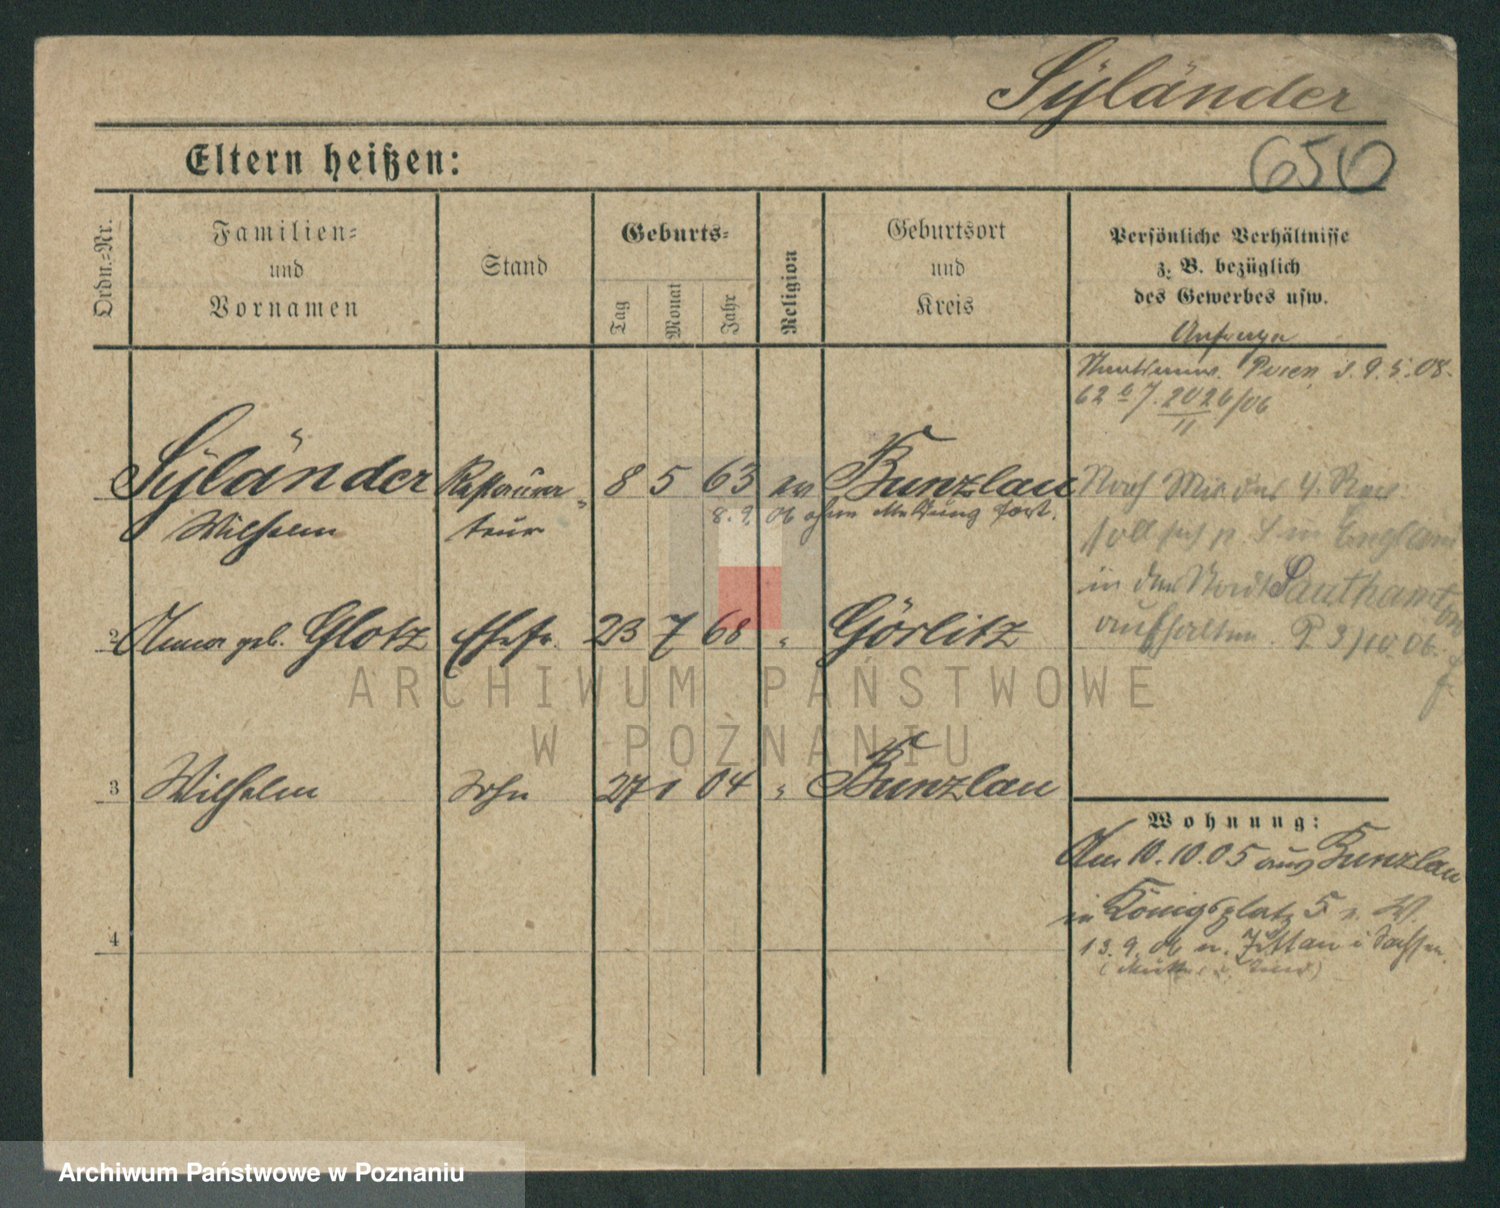 Syländer
650
Eltern heißen:
Ordn.-Nr.
Familien- und Vornamen
Stand
Geburts-
Tag
Monat
Jahr
Religion
Geburtsort und Kreis
Persönliche Verhältnisse
z. B. bezüglich
des Gewerbes usw.
Anfrage
Posen, d. 9.5.08.
2026/06
11
Syländer Restaura- 8 5 63 ev Bunzlau
8. 9. 06 ohne Meldung fort.
Wilhelm teur
Nach Mit. des 4. Rev.
soll sich p. S. in England
in der Stadt Southamton
aufhalten. P. 3/10. 06.
2 Anna geb. Glotz Ehefr. 23 7 68 " Görlitz
ARCHIWUM PAŃSTWOWE
W POZNANIU
3 Wilhelm Sohn 27 1 04 " Bunzlau
Wohnung:
Am 10.10.05 aus Bunzlau
in Königsplatz 5 b. W.
13.9.06 n. Zittau i Sachsen.
4
Archiwum Państwowe w Poznaniu